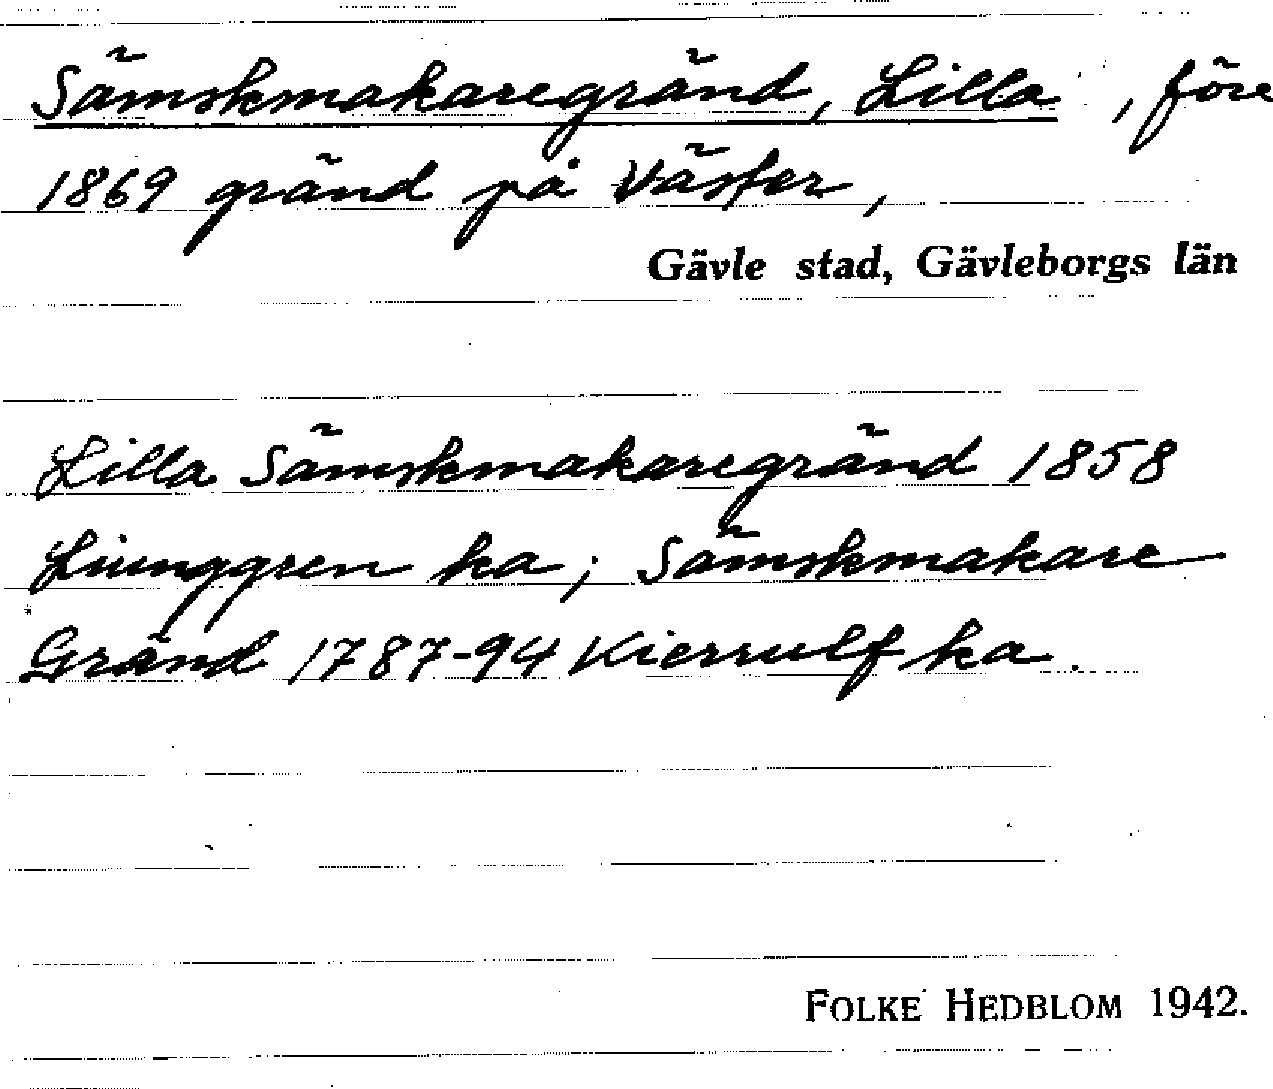 Sämskmakaregränd, Lilla , före
1869 gränd på Väster,
Gävle stad, Gävleborgs län
Lilla Sämskmakaregränd 1858
Liunggren ka; Sämskmakare
Gränd 1787-94 Kierrulf ka.
FOLKE HEDBLOM 1942.